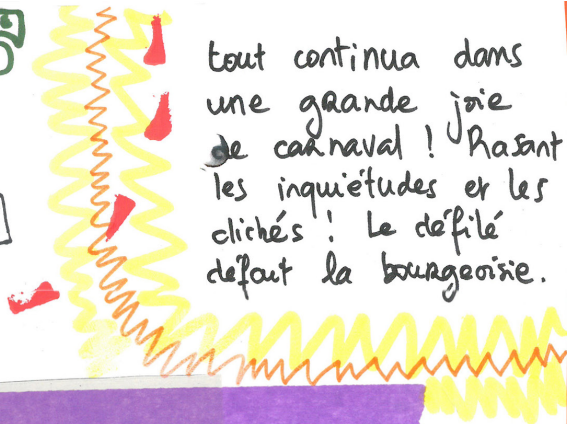 tout continua dans
une grande joie
de carnaval ! Rasant
les inquiétudes et les
clichés ! Le défilé
défait la bourgeoisie.